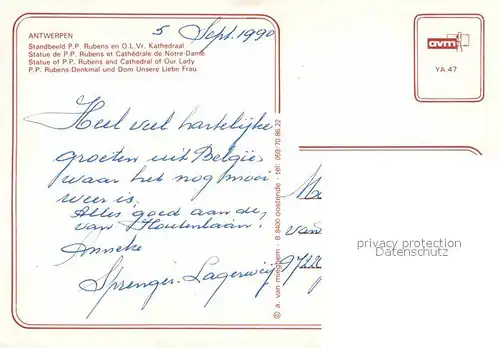 5 Sept. 1990
ANTWERPEN
Standbeeld P.P. Rubens en O.L.Vr. Kathedraal
Statue de P.P. Rubens et Cathédrale de Notre-Dame
Statue of P.P. Rubens and Cathedral of Our Lady
P.P. Rubens-Denkmal und Dom Unsere Liebe Frau
avm
YA.47
Heel veel hartelijke
groeten uit België
waar het nog mooi
weer is.
Alles goed aan de,
van Houtenlaan.
Anneke
Sprenger-Lagerwij
© a. van mieghem - B 8400 oostende - tel: 059/70.86.22
van
9722
privacy protection
Datenschutz